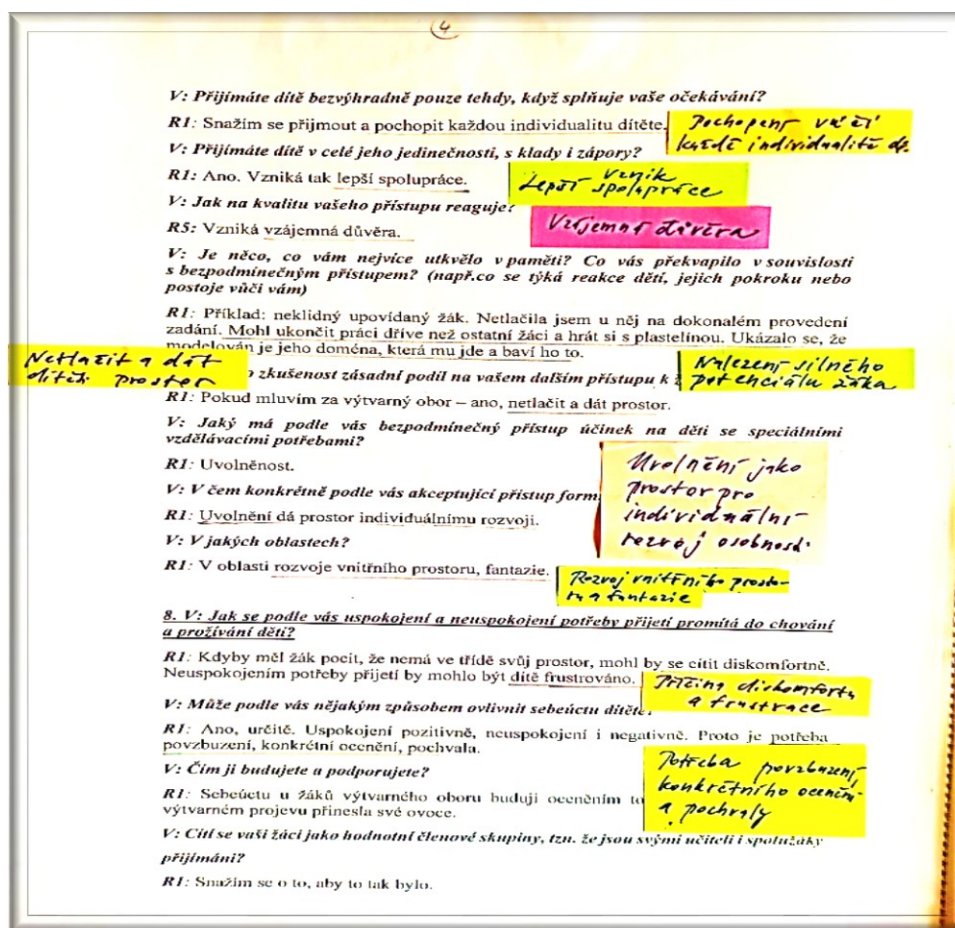 4
V: Přijímáte dítě bezvýhradně pouze tehdy, když splňuje vaše očekávání?
R1: Snažím se přijmout a pochopit každou individualitu dítěte.
Pochopení vůči
každé individualitě d.
V: Přijímáte dítě v celé jeho jedinečnosti, s klady i zápory?
R1: Ano. Vzniká tak lepší spolupráce.
Vznik
Lepší spolupráce
V: Jak na kvalitu vašeho přístupu reaguje?
R5: Vzniká vzájemná důvěra.
Vzájemná důvěra
V: Je něco, co vám nejvíce utkvělo v paměti? Co vás překvapilo v souvislosti
s bezpodmínečným přístupem? (např.co se týká reakce dětí, jejich pokroku nebo
postoje vůči vám)
R1: Příklad: neklidný upovídaný žák. Netlačila jsem u něj na dokonalém provedení
zadání. Mohl ukončit práci dříve než ostatní žáci a hrát si s plastelínou. Ukázalo se, že
modelován je jeho doména, která mu jde a baví ho to.
Netlačit a dát
dítěti prostor
zkušenost zásadní podíl na vašem dalším přístupu k
Nalezení silného
potenciálu žáka
R1: Pokud mluvím za výtvarný obor – ano, netlačit a dát prostor.
V: Jaký má podle vás bezpodmínečný přístup účinek na děti se speciálními
vzdělávacími potřebami?
R1: Uvolněnost.
V: V čem konkrétně podle vás akceptující přístup form
R1: Uvolnění dá prostor individuálnímu rozvoji.
Uvolnění jako
prostor pro
individuální
rozvoj osobnosti
V: V jakých oblastech?
R1: V oblasti rozvoje vnitřního prostoru, fantazie.
Rozvoj vnitřního prosto-
ru a fantazie
8. V: Jak se podle vás uspokojení a neuspokojení potřeby přijetí promítá do chování
a prožívání dětí?
R1: Kdyby měl žák pocit, že nemá ve třídě svůj prostor, mohl by se cítit diskomfortně.
Neuspokojením potřeby přijetí by mohlo být dítě frustrováno.
Příčina diskomfortu
a frustrace
V: Může podle vás nějakým způsobem ovlivnit sebeúctu dítěte
R1: Ano, určitě. Uspokojení pozitivně, neuspokojení i negativně. Proto je potřeba
povzbuzení, konkrétní ocenění, pochvala.
V: Čím ji budujete a podporujete?
Potřeba povzbuzení,
konkrétního ocenění
a pochvaly
R1: Sebeúctu u žáků výtvarného oboru buduji oceněním to
výtvarném projevu přinesla své ovoce.
V: Cítí se vaši žáci jako hodnotní členové skupiny, tzn. že jsou svými učiteli i spolužáky
přijímáni?
R1: Snažím se o to, aby to tak bylo.